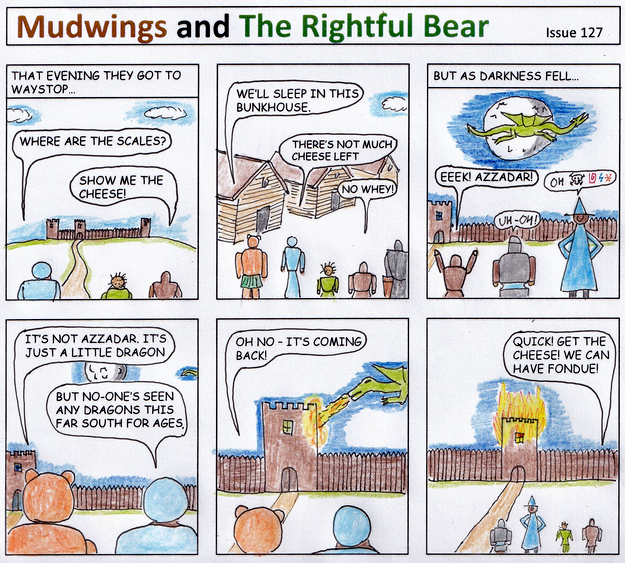 Mudwings and The Rightful Bear
Issue 127
THAT EVENING THEY GOT TO
WAYSTOP...
WHERE ARE THE SCALES?
SHOW ME THE
CHEESE!
WE'LL SLEEP IN THIS
BUNKHOUSE.
THERE'S NOT MUCH
CHEESE LEFT
NO WHEY!
BUT AS DARKNESS FELL...
EEEK! AZZADAR!
OH
UH-OH!
IT'S NOT AZZADAR. IT'S
JUST A LITTLE DRAGON
BUT NO-ONE'S SEEN
ANY DRAGONS THIS
FAR SOUTH FOR AGES.
OH NO - IT'S COMING
BACK!
QUICK! GET THE
CHEESE! WE CAN
HAVE FONDUE!